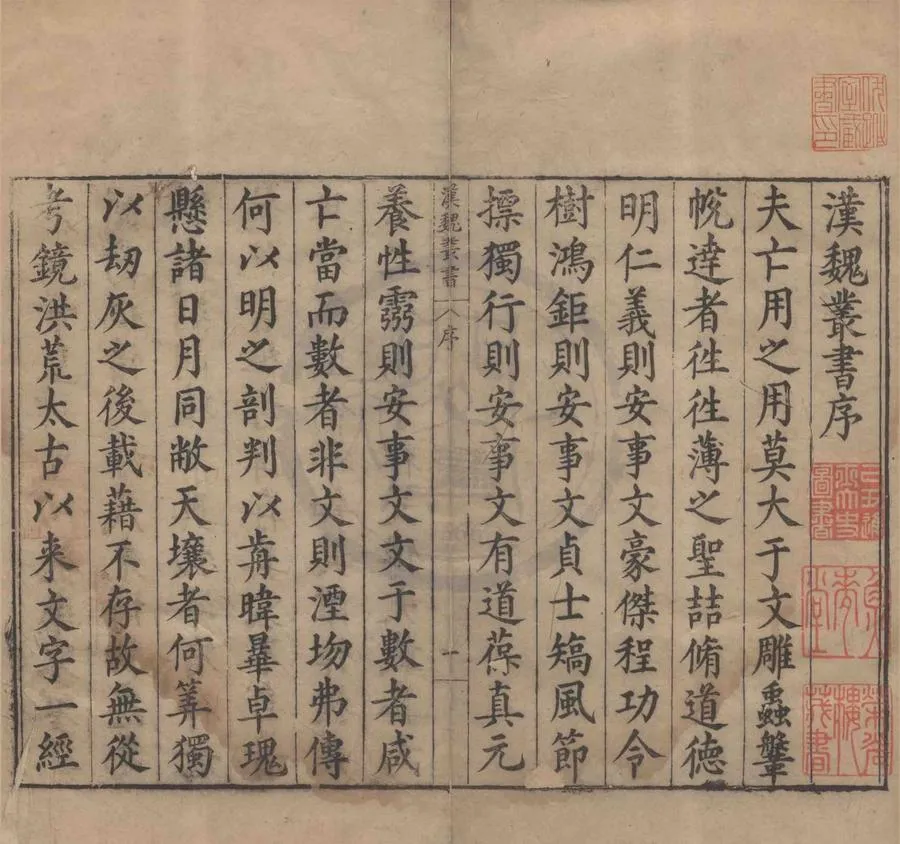 漢魏叢書序
夫亡用之用莫大于文雕蟲鞶
帨達者徃徃薄之聖喆脩道德
明仁義則安事文豪傑程功令
樹鴻鉅則安事文貞士矯風節
摽獨行則安事文有道葆真元
漢魏叢書 序 一
養性靈則安事文文于數者咸
亡當而數者非文則湮圽弗傳
何以明之剖判以歬暐曅卓瑰
懸諸日月同敝天壤者何筭獨
以刼灰之後載藉不存故無從
考鏡洪荒太古以来文字一經